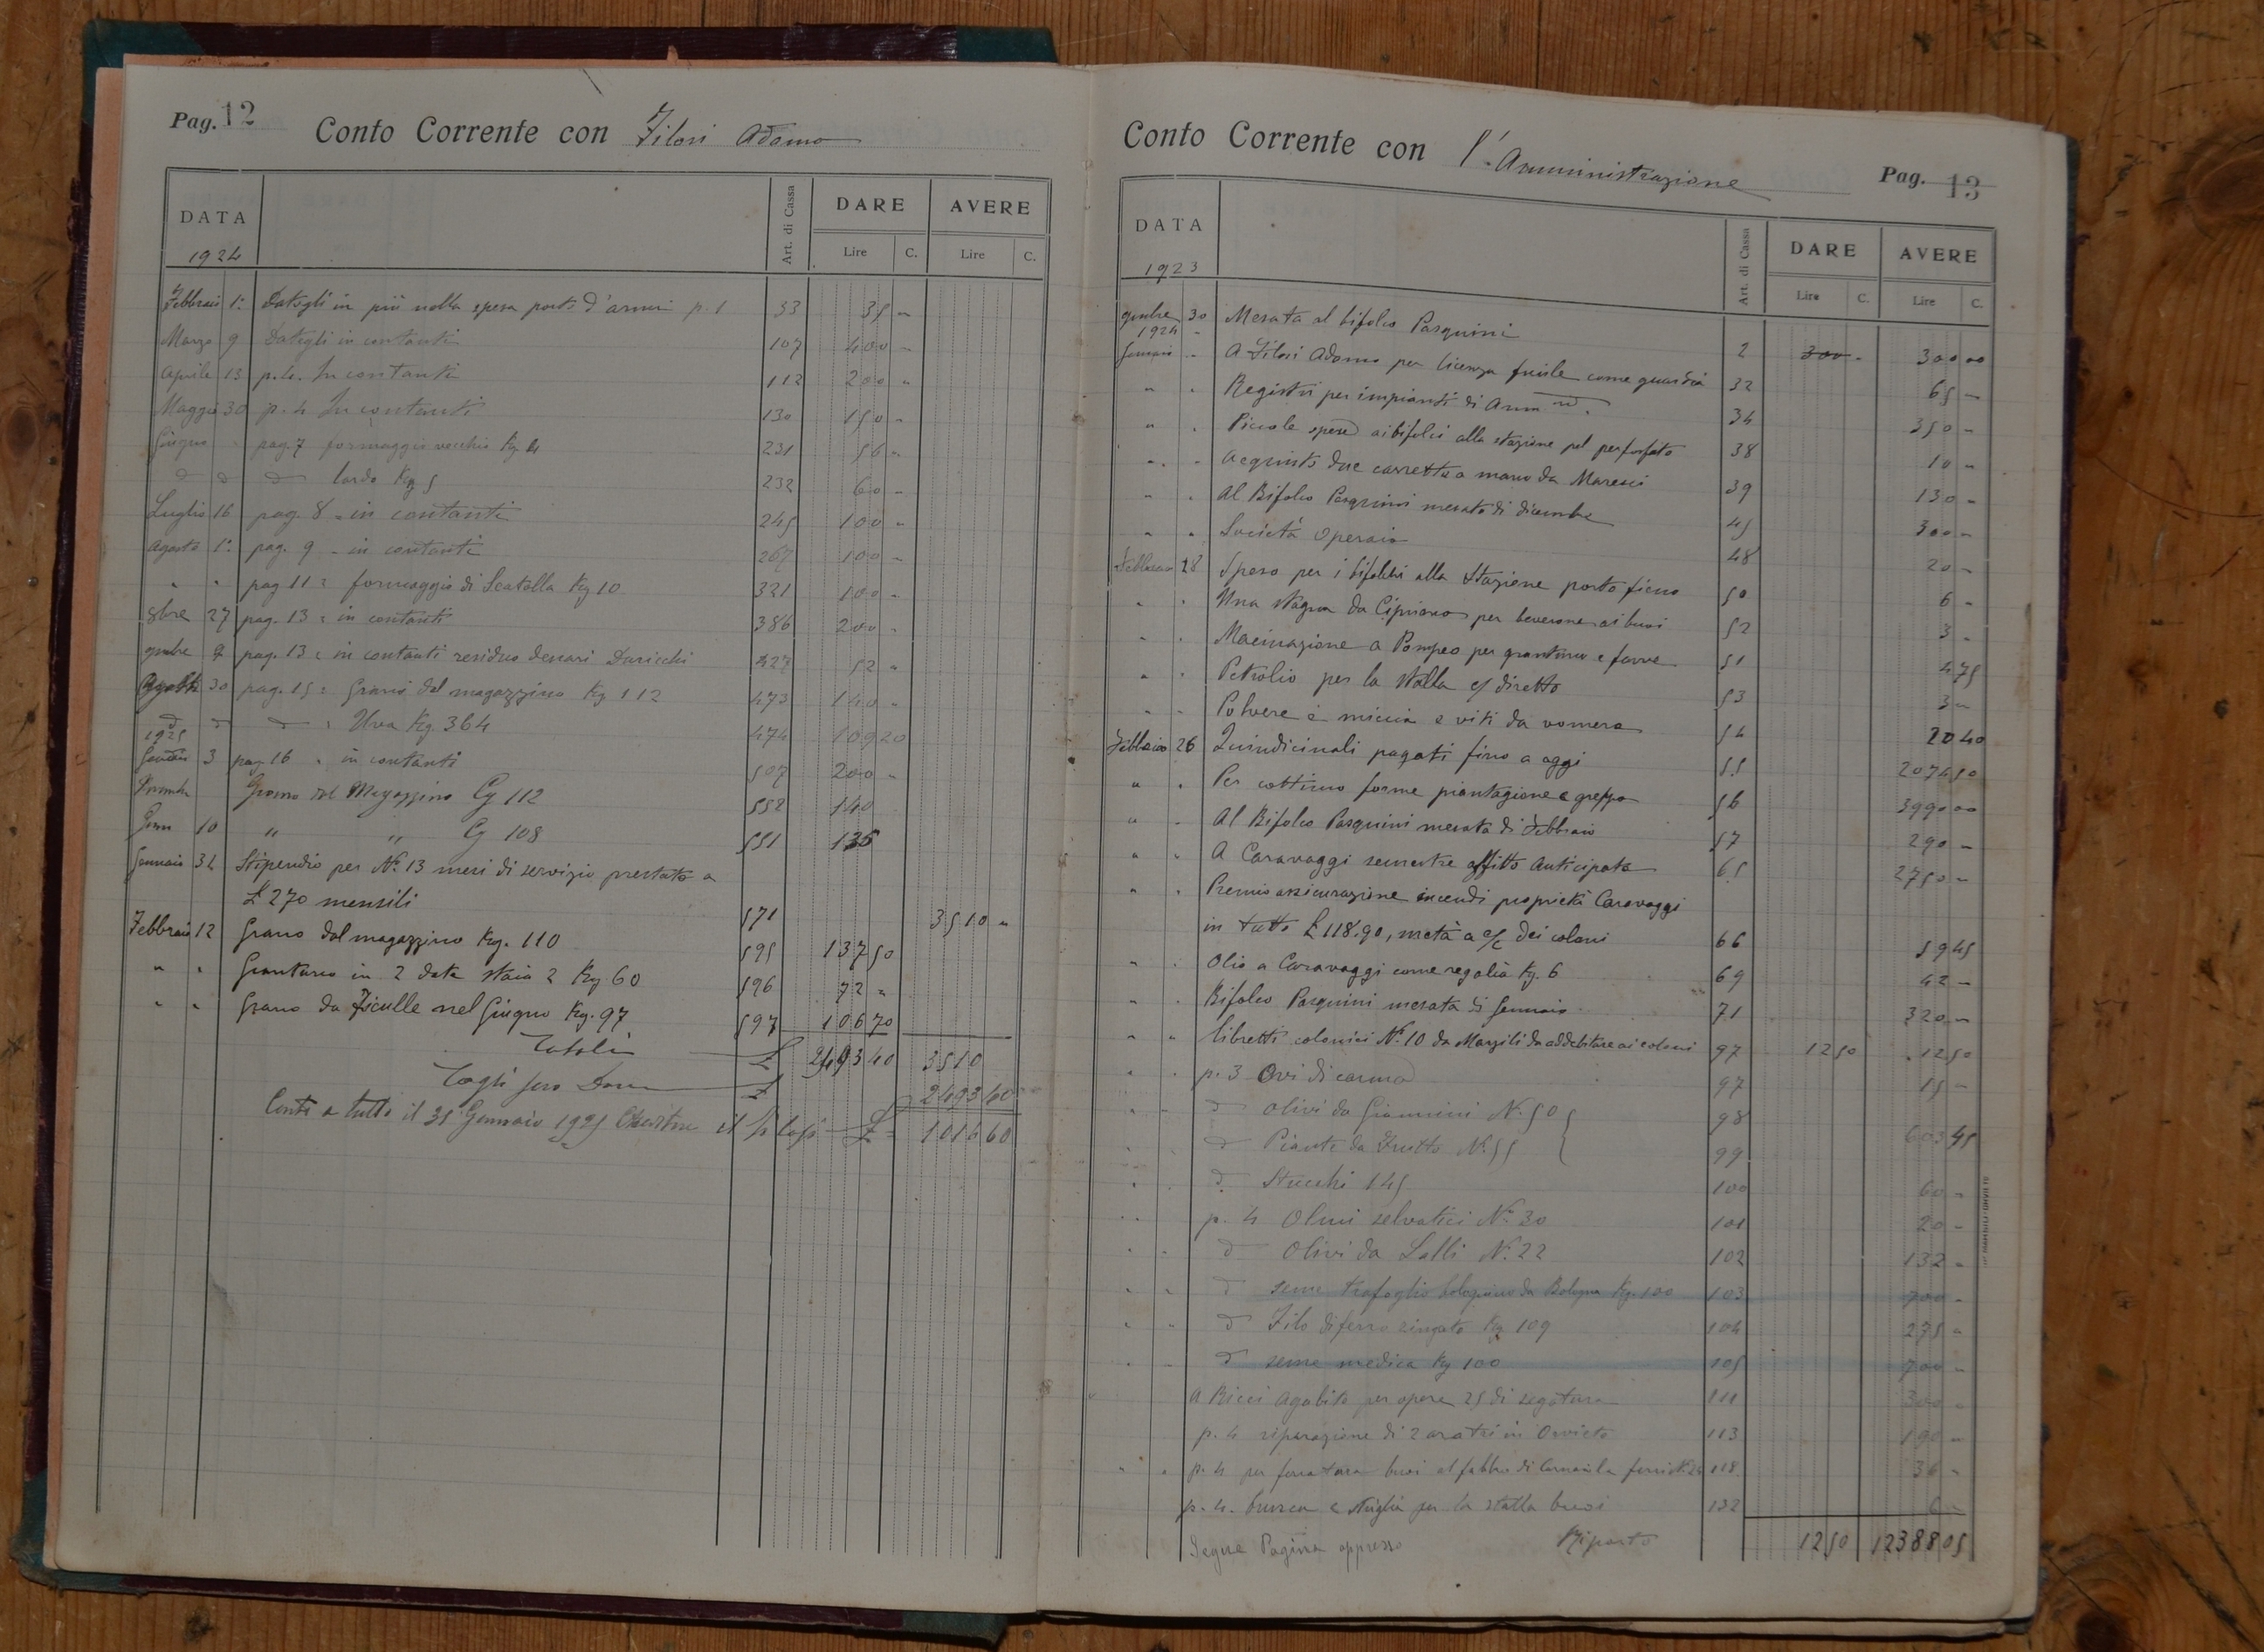 Pag. 12
Conto Corrente con Filosi Adamo
DATA
Art. di Cassa
DARE
AVERE
1924
Lire C. Lire C.
Febbraio 1: Datogli in più nella spesa porto d'armi p. 1 33 35 "
Marzo 9 Datogli in contanti 107 400 "
Aprile 13 p. 4. In contanti 112 200 "
Maggio 30 p. 4 In contanti 130 150 "
Giugno " pag. 7 formaggio vecchio Kg 4 231 56 "
lardo Kg 5 232 60 "
Luglio 16 pag. 8 - in contanti 245 100 "
Agosto 1: pag. 9 - in contanti 267 100 "
" " pag 11 = formaggio di Scatolla Kg 10 321 100 "
8bre 27 pag. 13 = in contanti 386 200 "
9mbre 9 pag. 13 = in contanti residuo denari 427 52 "
30 pag. 15 = Grano dal magazzino Kg 112 473 140 "
Uva Kg. 364 474 109 20
1925
Gennaio 3 pag. 16 " in contanti 507 200 "
Grano dal Magazzino Cg 112 552 140
10 " " Cg 108 551 135
Gennaio 31 Stipendio per N° 13 mesi di servizio prestato a
£ 270 mensili 571 3510 "
Febbraio 12 Grano dal magazzino Kg. 110 595 137 50
" " Granturco in 2 date staia 2 Kg 60 596 72 "
" " Grano da Ficulle nel Giugno Kg. 97 597 106 70
Totali £ 2493 40 3510
£ 2493 40
Conti a tutto il 31 Gennaio 1925 il £ = 1016 60
Conto Corrente con l'Amministrazione
Pag. 13
DATA
Art. di Cassa
DARE
AVERE
1923
Lire C. Lire C.
9mbre 30 Mesata al bifolco Pasquini 2 300 - 300 00
1924
Gennaio " A Filosi Adamo per licenza fucile come guardia 32 65 "
" " Registri per impianti di Amm.ne 34 350 "
" " Piccole spese ai bifolci alla stazione pel perfosfato 38 10 "
" " Acquisto due carrette a mano da Maresci 39 130 "
" " Al Bifolco Pasquini mesata di dicembre 45 300 "
" " Società Operaia 48 20 "
Febbraio 28 Spese per i bifolchi alla Stazione porto fieno 50 6 "
" " Una stagna da Cipriano per beverone ai buoi 52 3 "
" " Macinazione a Pompeo per granturco e favve 51 475
" " Petrolio per la stalla c/ diretto 53 3 "
" " Polvere e miccia e viti da vomera 54 20 40
Febbraio 26 Quindicinali pagati fino a oggi 55 2074 50
" " Per cottimo forme piantagione e greppo 56 3990 00
" " Al Bifolco Pasquini mesata di Febbraio 57 290 "
" " A Caravaggi semestre affitto anticipato 65 2750 "
" " Premio assicurazione incendi proprietà Caravaggi
in tutto £ 118.90, metà a c/c dei coloni 66 59 45
" " Olio a Caravaggi come regalia Kg. 6 69 42 "
" " Bifolco Pasquini mesata di Gennaio 71 320 "
" " Libretti colonici N° 10 da Marzili da addebitare ai coloni 97 12 50 12 50
" " p. 3 97 15 "
" " Olivi da Giannini N. 50 98
Piante da Frutto N. 55 99 603 45
Stucchi 145 100 60 "
p. 4 Olmi selvatici N° 30 101 20 "
" " Olivi da Lalli N. 22 102 132 "
" " seme trafoglio bolognino da Bologna Kg. 100 103 700 "
" " Filo di ferro zingato Kg 109 104 275 "
" " seme medica Kg 100 105 700 "
A Ricci Agabito per opere 25 di segatura 111 300 "
p. 4 riparazione di 2 aratri in Orvieto 113 190 "
" " p. 4 per ferratura buoi al fabbro di ferri N. 24 118 36 "
p. 4. brusca e striglia per la stalla buoi 132 6 "
Segue Pagina appresso Riporto 12 50 12388 05